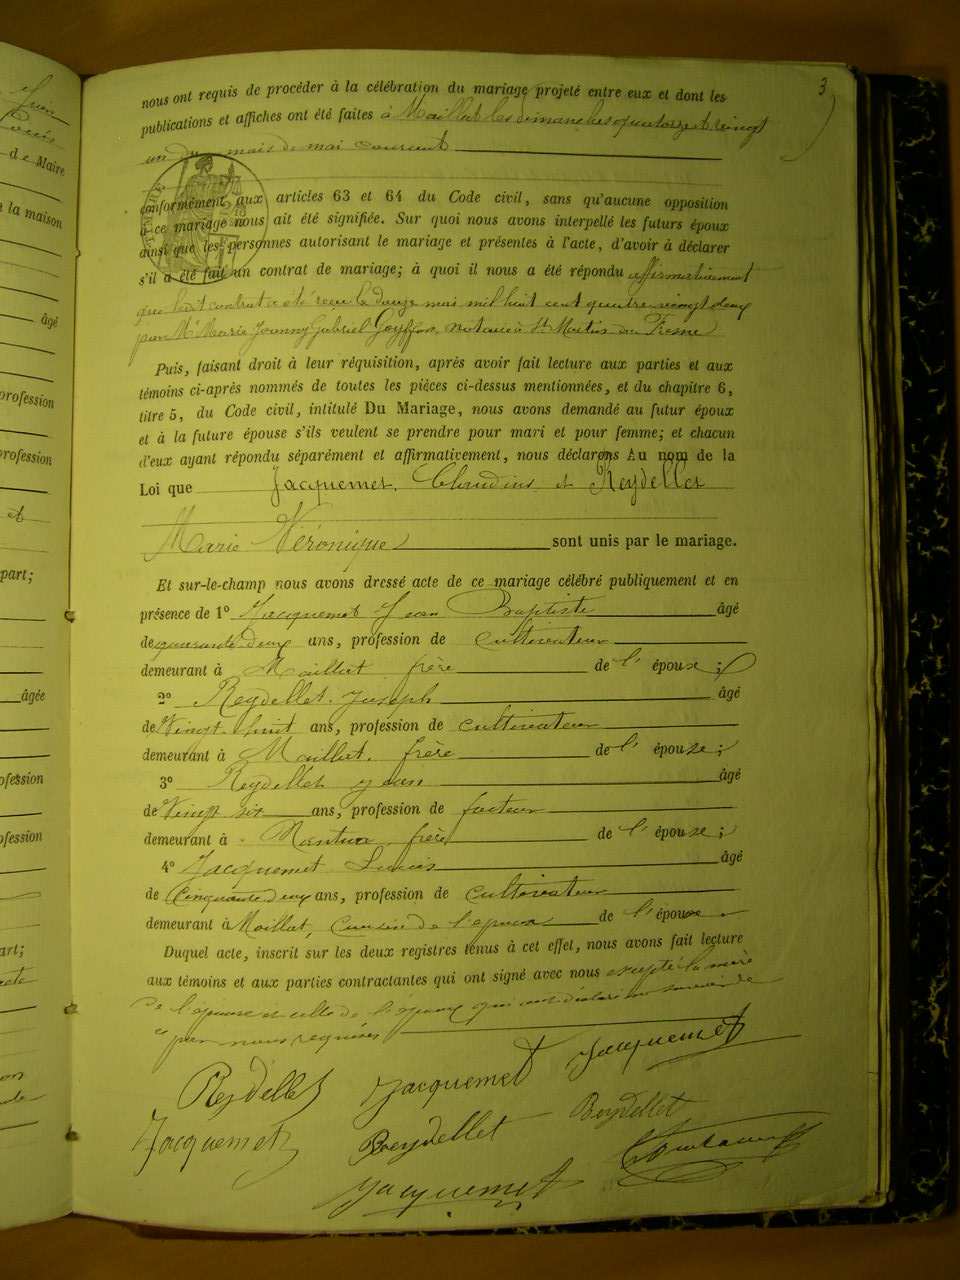 3
nous ont requis de procéder à la célébration du mariage projeté entre eux et dont les
publications et affiches ont été faites à Maillat les dimanches quatorze et vingt
un du mois de mai courant
conformément aux articles 63 et 64 du Code civil, sans qu'aucune opposition
à ce mariage nous ait été signifiée. Sur quoi nous avons interpellé les futurs époux
ainsi que les personnes autorisant le mariage et présentes à l'acte, d'avoir à déclarer
s'il a été fait un contrat de mariage; à quoi il nous a été répondu affirmativement
que ledit contrat a été reçu le douze mai mil huit cent quatre vingt deux
par Me Marie Joanny Gabriel notaire à St Martin du Fresne
Puis, faisant droit à leur réquisition, après avoir fait lecture aux parties et aux
témoins ci-après nommés de toutes les pièces ci-dessus mentionnées, et du chapitre 6,
titre 5, du Code civil, intitulé Du Mariage, nous avons demandé au futur époux
et à la future épouse s'ils veulent se prendre pour mari et pour femme; et chacun
d'eux ayant répondu séparément et affirmativement, nous déclarons Au nom de la
Loi que Jacquemet, Claudius et Reydellet
Marie Véronique sont unis par le mariage.
Et sur-le-champ nous avons dressé acte de ce mariage célébré publiquement et en
présence de 1° Jacquemet Jean Baptiste âgé
de quarante deux ans, profession de cultivateur
demeurant à Maillat frère de l' époux;
2° Reydellet Joseph âgé
de Vingt huit ans, profession de cultivateur
demeurant à Maillat, frère de l' épouse;
3° Reydellet Jean âgé
de Vingt six ans, profession de facteur
demeurant à Nantua frère de l' épouse;
4° Jacquemet Louis âgé
de Cinquante deux ans, profession de cultivateur
demeurant à Maillat, cousin de l'époux de l'épouse
Duquel acte, inscrit sur les deux registres tenus à cet effet, nous avons fait lecture
aux témoins et aux parties contractantes qui ont signé avec nous excepté la mère
de l'épouse et celle de l'époux qui ont déclaré ne savoir de
ce par nous requises
Reydellet Jacquemet Jacquemet
Jacquemet Reydellet Reydellet
Jacquemet